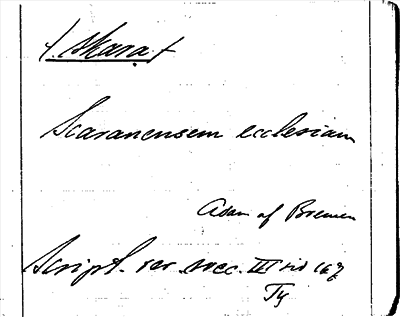 (Skara)
Scaranensem ecclesiam
Adam af Bremen
Script. rer. svec. III sid 167
Ty